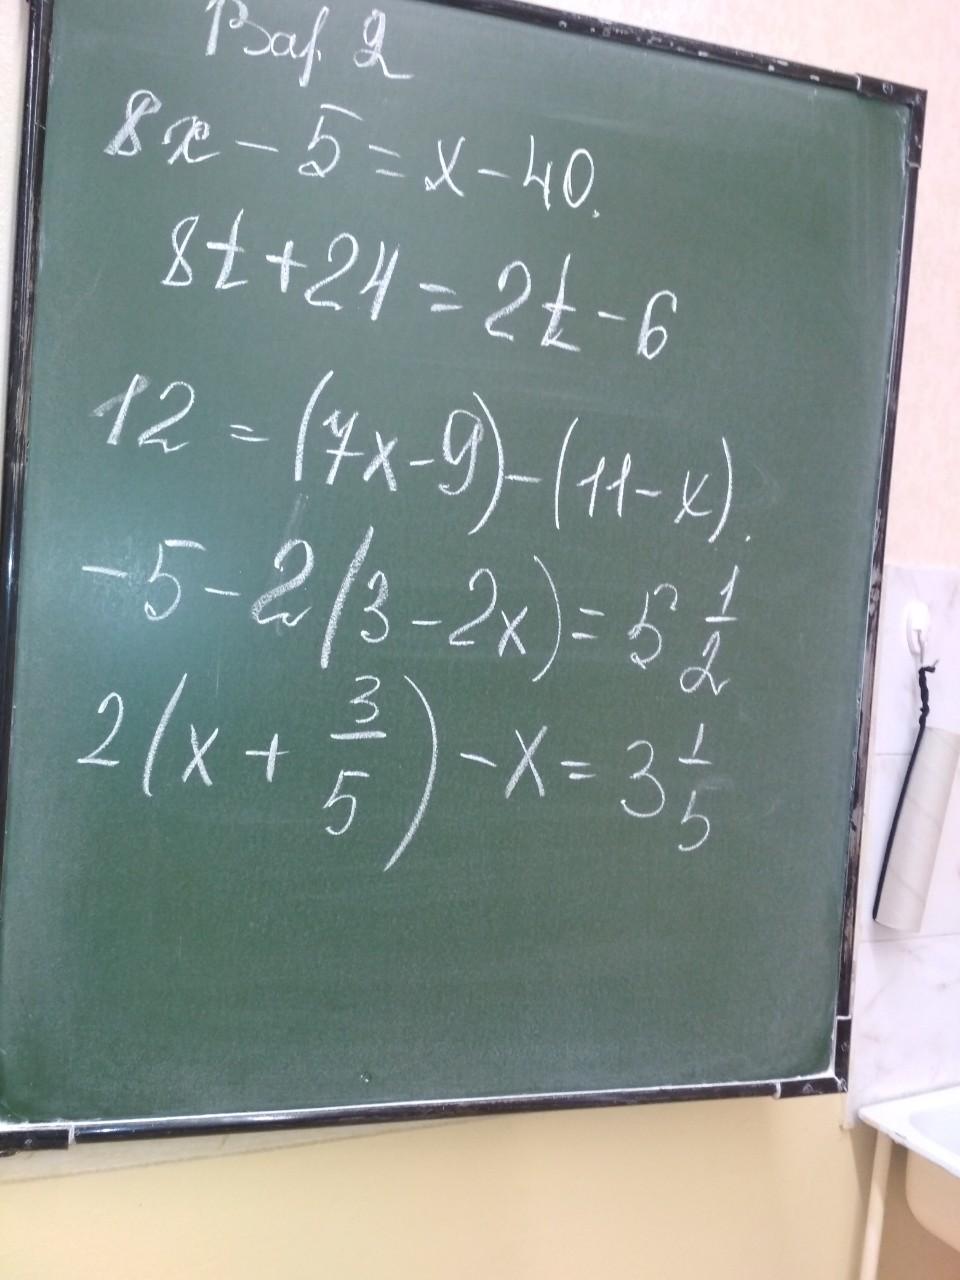 Вар. 2
8x - 5 = x - 40.
8t + 24 = 2t - 6
12 = (7x - 9) - (11 - x).
-5 - 2(3 - 2x) = 5 1/2
2(x + 3/5) - x = 3 1/5